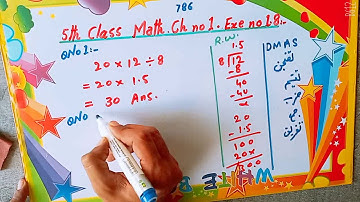 786
5th Class Math. Ch no 1. Exe no 1.8:-
QNo 1:-
20 × 12 ÷ 8
= 20 × 1.5
= 30 Ans.
QNo
R.W.
1.5
8 12
-8
40
40
×
20
1.5
100
20×
DMAS
تقسیم
ضرب
جمع
تفریق
WHITE B